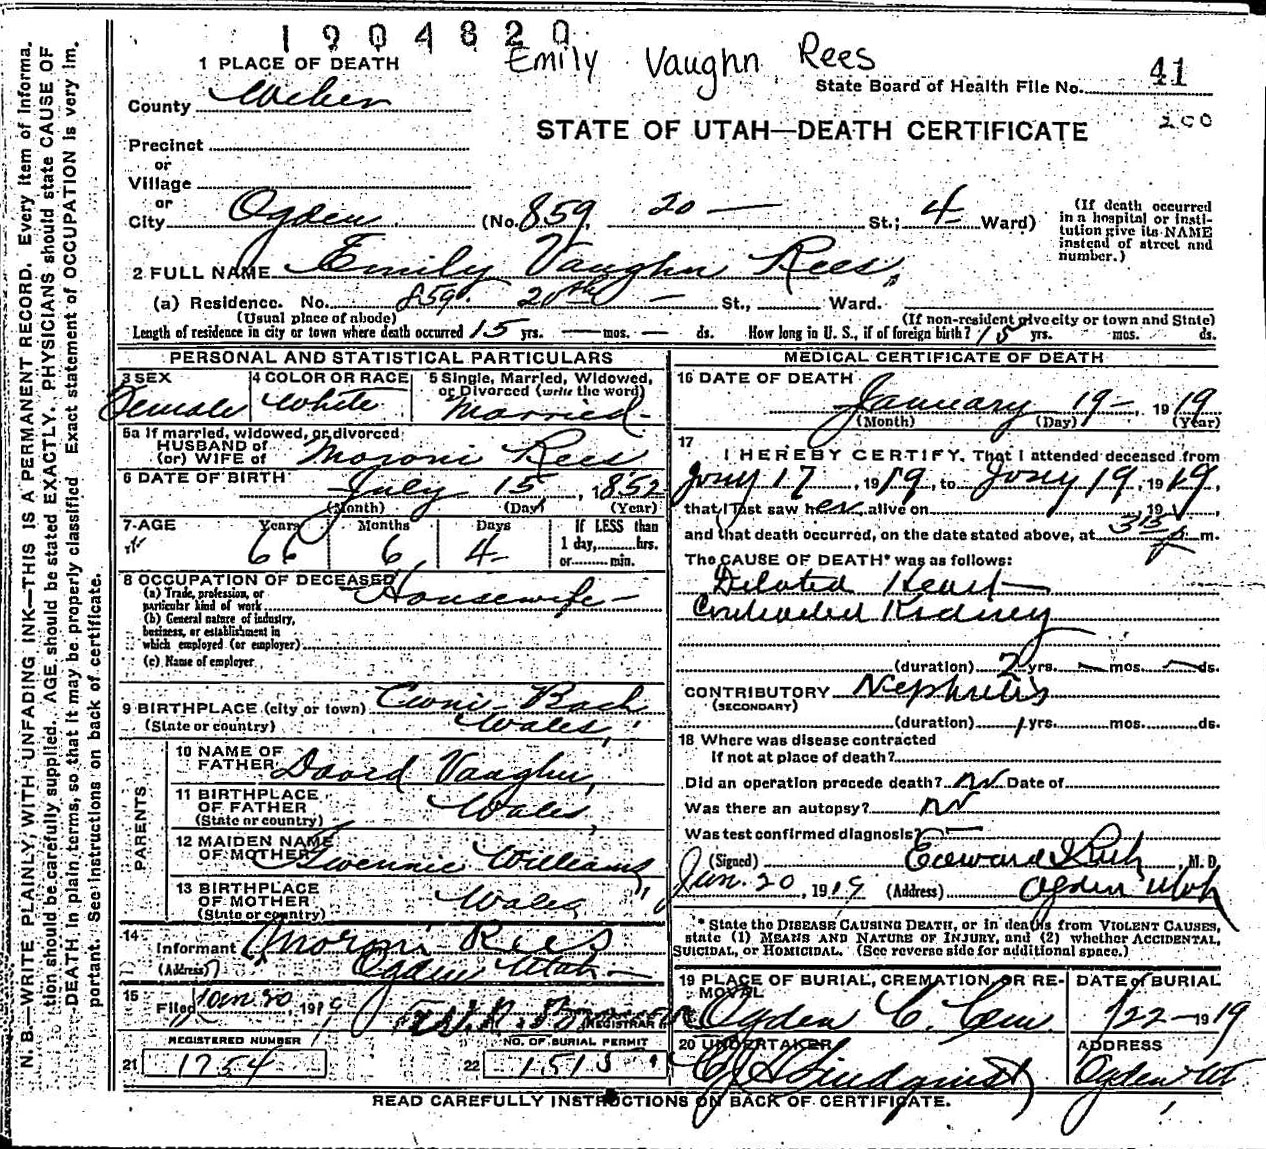 1904820
Emily Vaughn Rees
1 PLACE OF DEATH
State Board of Health File No. 41
County Weber
200
STATE OF UTAH—DEATH CERTIFICATE
Precinct
or
Village
or
City Ogden (No. 859, 20 — St.; 4 Ward)
(If death occurred in a hospital or institution give its NAME instead of street and number.)
2 FULL NAME Emily Vaughn Rees,
(a) Residence. No. 859. 20th — St., Ward.
(Usual place of abode) (If non-resident give city or town and State)
Length of residence in city or town where death occurred 15 yrs. — mos. — ds. How long in U. S., if of foreign birth? 15 yrs. mos. ds.
PERSONAL AND STATISTICAL PARTICULARS
3 SEX Female
4 COLOR OR RACE White
5 Single, Married, Widowed, or Divorced (write the word) Married-
5a If married, widowed, or divorced
HUSBAND of
(or) WIFE of Moroni Rees
6 DATE OF BIRTH July 15, 1852
(Month) (Day) (Year)
7 AGE Years 66 Months 6 Days 4
If LESS than
1 day, hrs.
or min.
8 OCCUPATION OF DECEASED
(a) Trade, profession, or
particular kind of work Housewife-
(b) General nature of industry,
business, or establishment in
which employed (or employer)
(c) Name of employer
9 BIRTHPLACE (city or town) Bach
(State or country) Wales,
PARENTS
10 NAME OF
FATHER David Vaughn,
11 BIRTHPLACE
OF FATHER Wales,
(State or country)
12 MAIDEN NAME
OF MOTHER Gwennie Williams,
13 BIRTHPLACE
OF MOTHER Wales,
(State or country)
14 Informant Moroni Rees
(Address) Ogden Utah-
15 Filed Jan 20, 1919
REGISTRAR
REGISTERED NUMBER
21 1754
NO. OF BURIAL PERMIT
22 1515
MEDICAL CERTIFICATE OF DEATH
16 DATE OF DEATH
January 19-, 1919
(Month) (Day) (Year)
17 I HEREBY CERTIFY, That I attended deceased from
Jany 17, 1919, to Jany 19, 1919,
that I last saw her alive on 19
and that death occurred, on the date stated above, at 315 p m.
The CAUSE OF DEATH* was as follows:
Dilated Heart
Contracted Kidney
(duration) 2 yrs. — mos. — ds.
CONTRIBUTORY Nephritis
(SECONDARY)
(duration) 1 yrs. mos. ds.
18 Where was disease contracted
If not at place of death?
Did an operation precede death? no Date of
Was there an autopsy? no
Was test confirmed diagnosis? —
(Signed) Edward Rich, M. D.
Jan. 20, 1919 (Address) Ogden Utah
* State the DISEASE CAUSING DEATH, or in deaths from VIOLENT CAUSES,
state (1) MEANS AND NATURE OF INJURY, and (2) whether ACCIDENTAL,
SUICIDAL, or HOMICIDAL. (See reverse side for additional space.)
19 PLACE OF BURIAL, CREMATION, OR REMOVAL
Ogden C. Cem.
DATE of BURIAL
1/22-1919
20 UNDERTAKER
Lindquist
ADDRESS
Ogden Ut
READ CAREFULLY INSTRUCTIONS ON BACK OF CERTIFICATE.
N. B.—WRITE PLAINLY, WITH UNFADING INK—THIS IS A PERMANENT RECORD. Every item of informa-
tion should be carefully supplied. AGE should be stated EXACTLY. PHYSICIANS should state CAUSE OF
DEATH in plain terms, so that it may be properly classified. Exact statement of OCCUPATION is very im-
portant. See instructions on back of certificate.